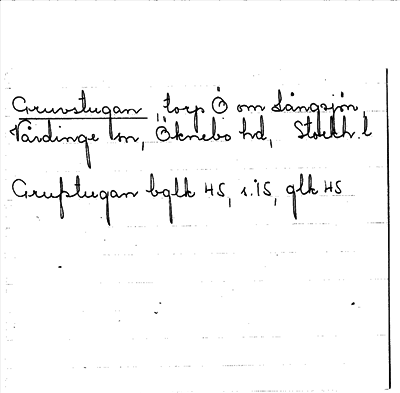 Gruvstugan torp Ö om Långsjön,
Vårdinge sn, Öknebo hd, Stockh. l
Grufstugan bglk HS, s. IS, glk HS